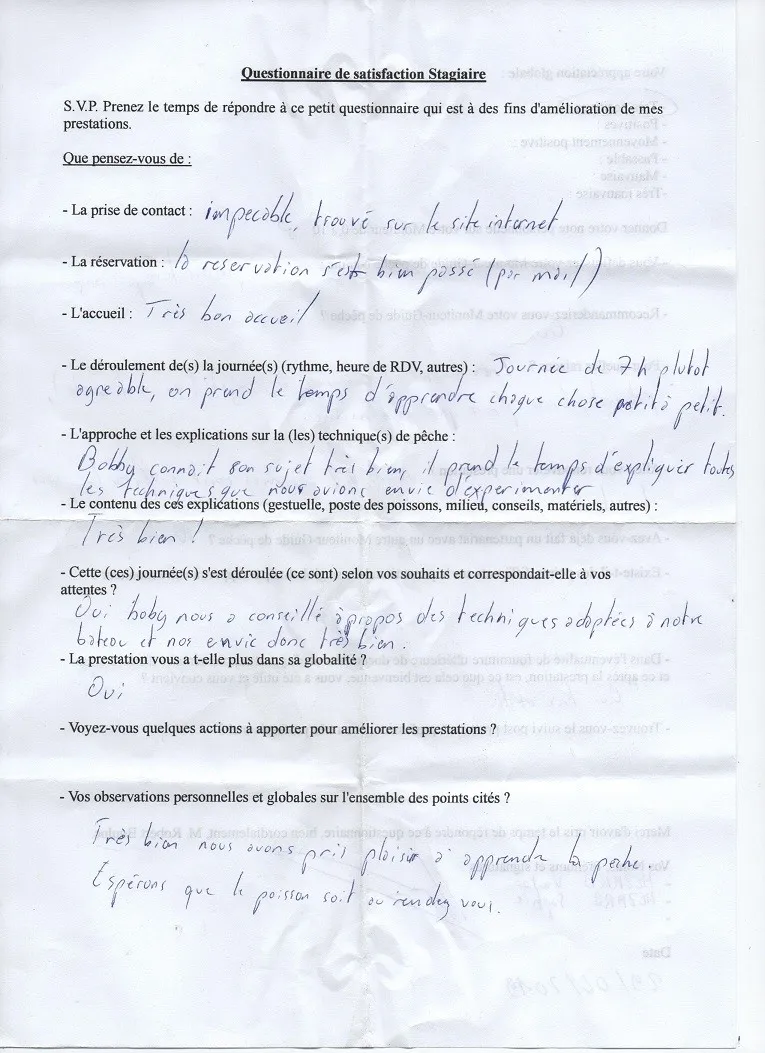 Questionnaire de satisfaction Stagiaire
S.V.P. Prenez le temps de répondre à ce petit questionnaire qui est à des fins d'amélioration de mes
prestations.
Que pensez-vous de :
- La prise de contact : impecable, trouvé sur le site internet
- La réservation : la reservation s'est bien passé (par mail)
- L'accueil : Très bon accueil
- Le déroulement de(s) la journée(s) (rythme, heure de RDV, autres) : Journée de 7h plutot
agreable, on prend le temps d'apprendre chaque chose petit à petit.
- L'approche et les explications sur la (les) technique(s) de pêche :
Bobby connait son sujet très bien, il prend le temps d'expliquer toutes
les techniques que nous avions envie d'experimenter
- Le contenu des ces explications (gestuelle, poste des poissons, milieu, conseils, matériels, autres) :
Très bien !
- Cette (ces) journée(s) s'est déroulée (ce sont) selon vos souhaits et correspondait-elle à vos
attentes ?
Oui boby nous a conseillé àpropos des techniques adaptées à notre
bateau et nos envie donc très bien.
- La prestation vous a t-elle plus dans sa globalité ?
Oui
- Voyez-vous quelques actions à apporter pour améliorer les prestations ?
- Vos observations personnelles et globales sur l'ensemble des points cités ?
Très bien nous avons pris plaisir à apprendre la peche.
Espérons que le poisson soit au rendez vous.